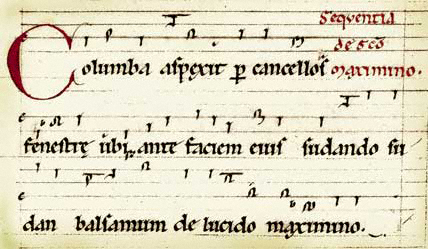 Sequentia
de sco
Columba aspexit p cancellos maximino.
fenestrę ubi ante faciem eius sudando su
dan balsamum de lucido maximino.